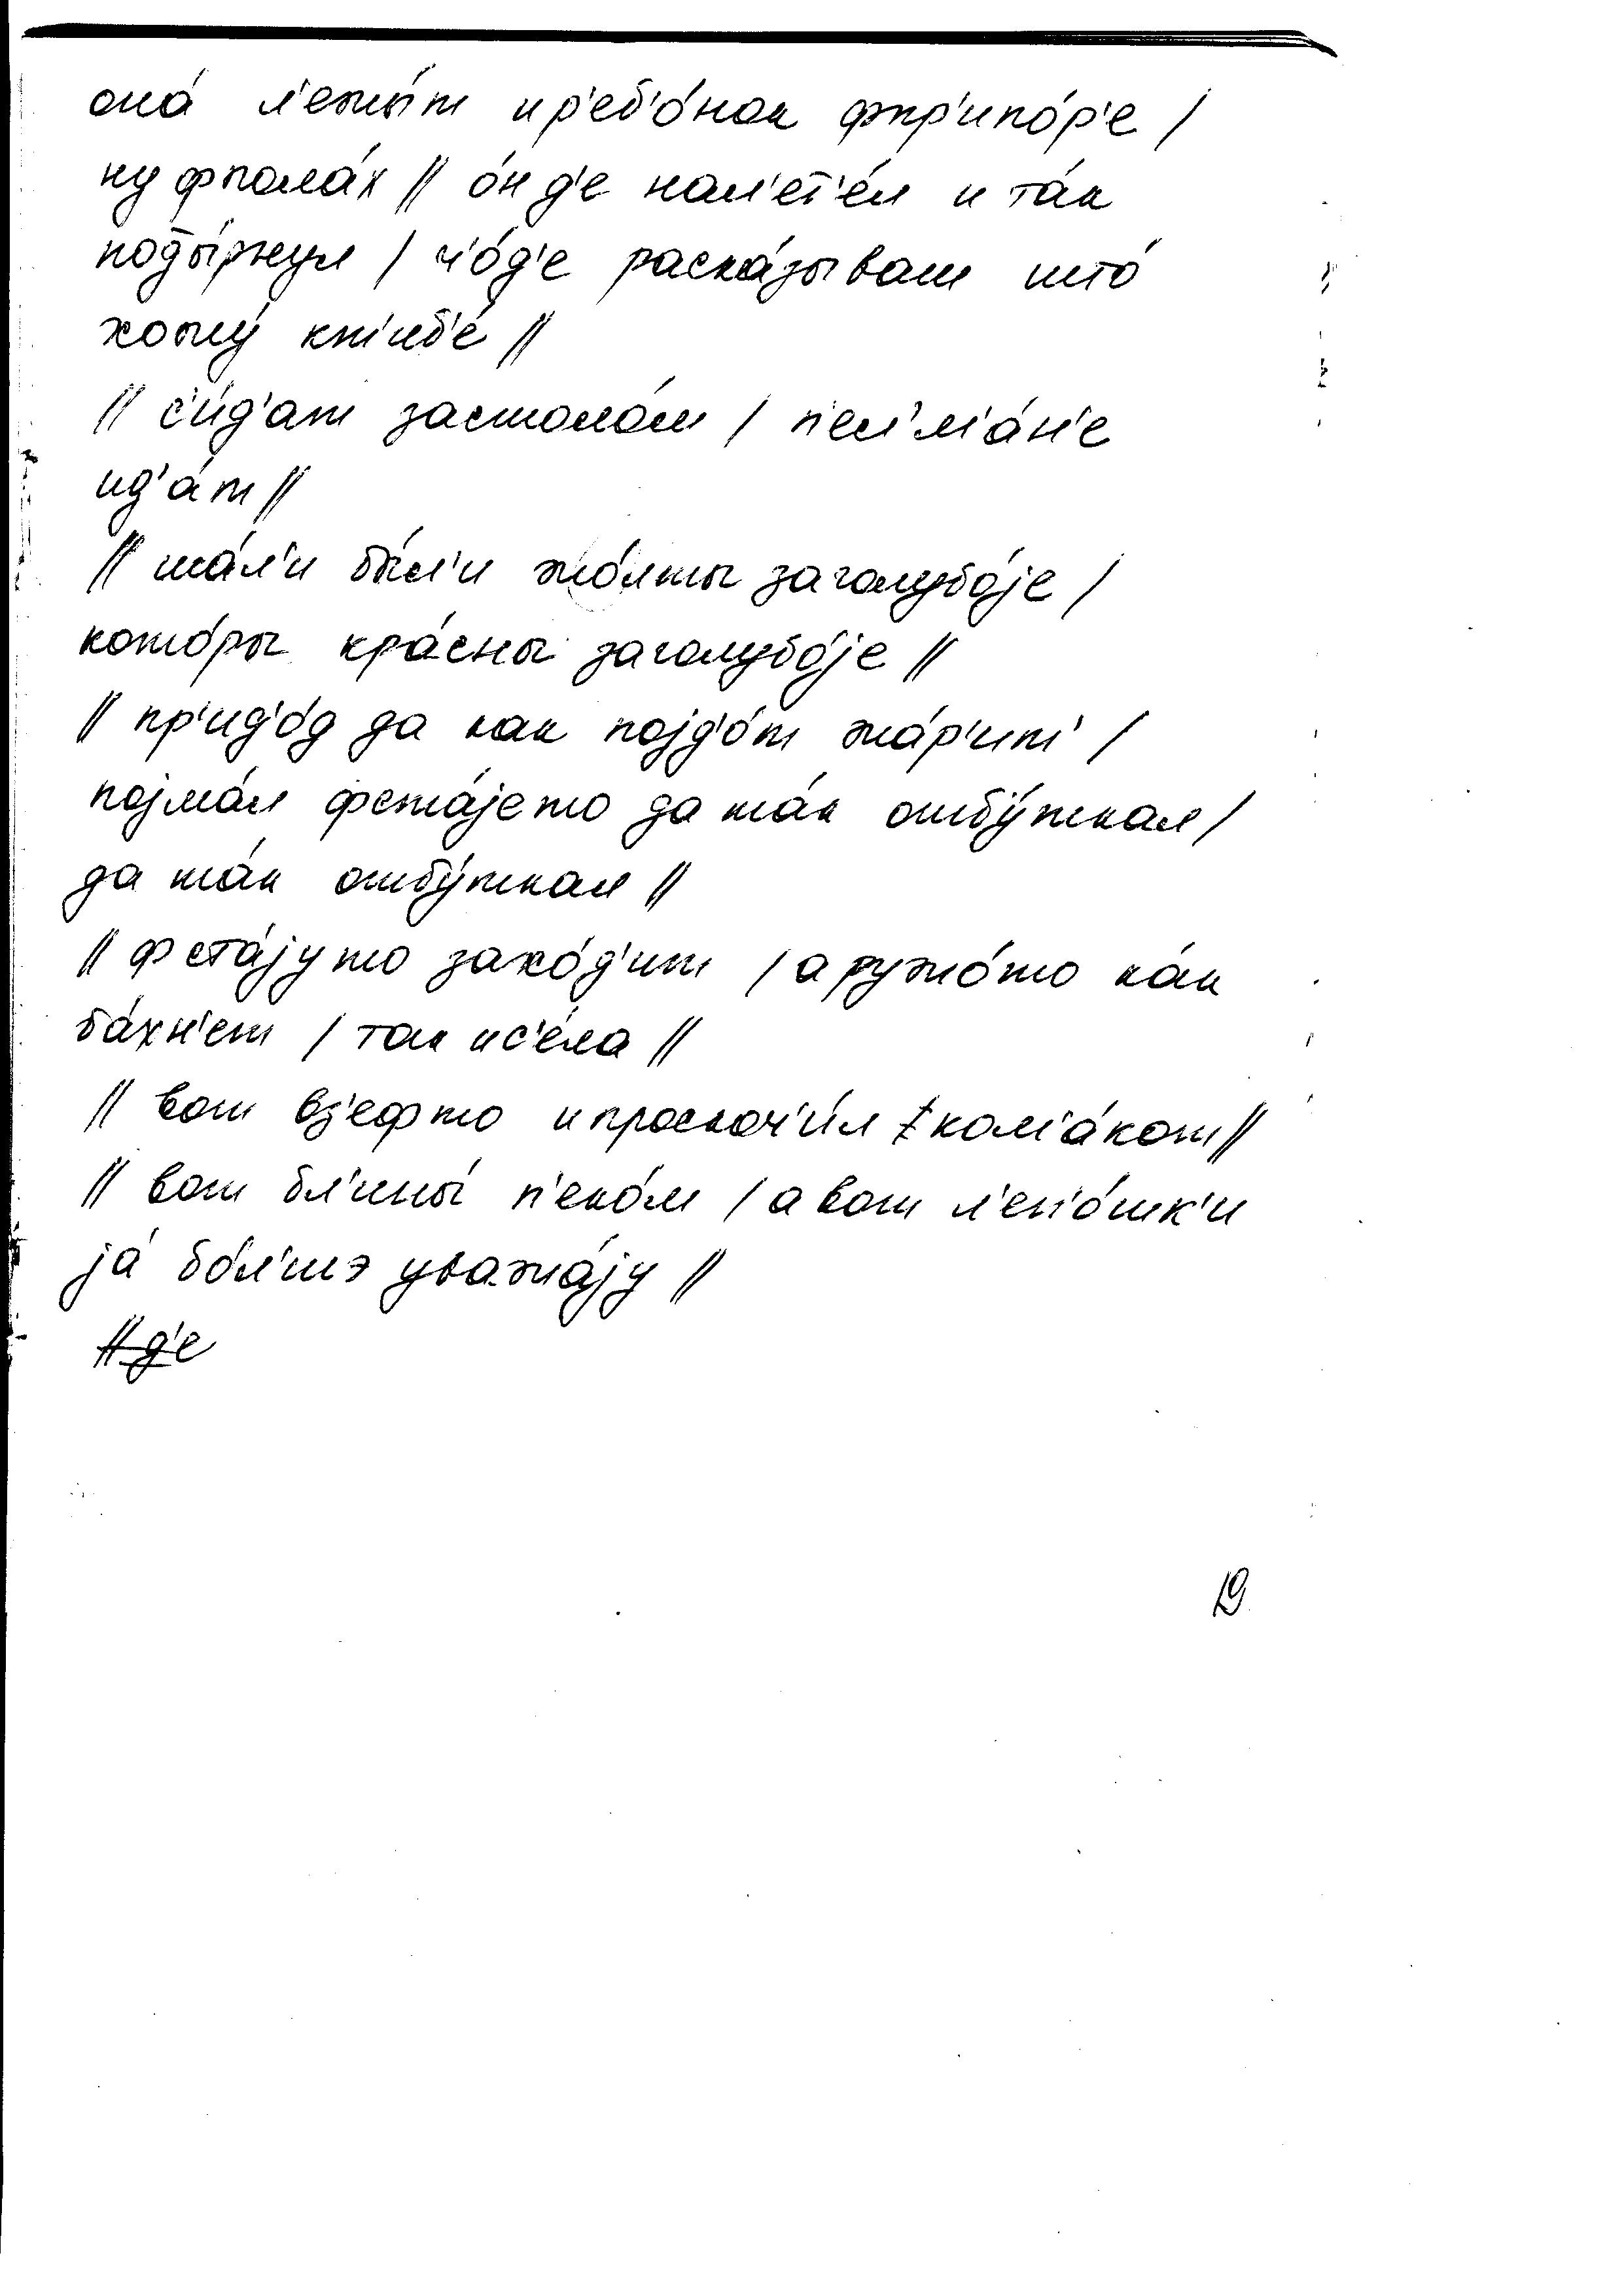 она́ л'ежы́т и р'еб'о́нок фпр'ипо́р'е /
ну фпола́х // о́н д'е нал'ет'е́л и та́к
поды́ржнул / ч'о́д'е раска́зывам што́
хожу́ кт'иб'е́ //
// с'ид'а́т застоло́м / п'ел'м'а́н'е
ид'а́т //
// ша́л'и бы́л'и жо́лты заголубо́jе /
кото́ры кра́сны заголубо́jе //
// пр'ид'о́д да как поjд'о́т жа́р'ит' /
поjма́л фста́jето да та́к отбу́ткал /
да та́к отбу́ткал //
// фста́jуто захо́д'ит / а ружо́то ка́к
ба́хн'ет / так ис'е́ла //
// вот вз'ефто и проскоч'и́л кол'а́ком //
// вот бл'ины́ п'еко́м / а вот л'еп'о́шк'и
jа́ бо́л'шэ уважа́jу //
// д'е
19